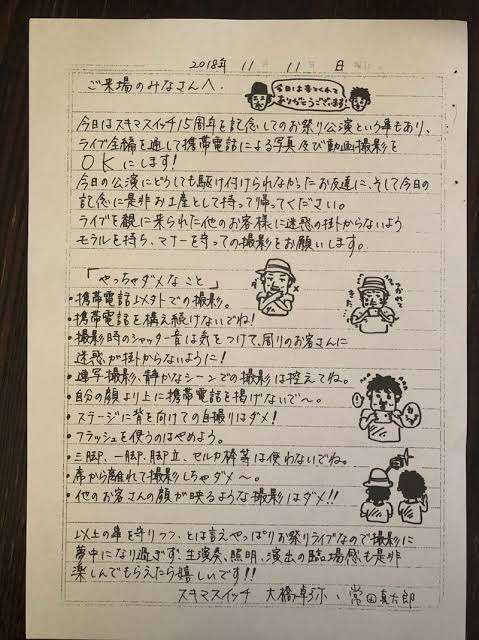 2018年 11月 11日 日曜日
ご来場のみなさんへ.
今日は来てくれて
ありがとうございます!
今日はスキマスイッチ15周年を記念してのお祭り公演という事もあり、
ライブ全編を通して携帯電話による写真及び動画撮影を
OKにします!
今日の公演にどうしても駆け付けられなかったお友達に、そして今日の
記念に是非お土産として持って帰ってください。
ライブを観に来られた他のお客様に迷惑の掛からないよう
モラルを持ち、マナーを守っての撮影をお願いします。
「やっちゃダメなこと」
・携帯電話以外での撮影。
・携帯電話を構え続けないでね!
・撮影時のシャッター音は気をつけて、周りのお客さんに
迷惑が掛からないように!
・連写撮影、静かなシーンでの撮影は控えてね。
・自分の顔より上に携帯電話を掲げないで〜。
・ステージに背を向けての自撮りはダメ!
・フラッシュを使うのはやめよう。
・三脚、一脚、脚立、セルカ棒等は使わないでね。
・席から離れて撮影しちゃダメ〜!
・他のお客さんの顔が映るような撮影はダメ!!
以上の事を守りつつ、とは言えやっぱりお祭りライブなので撮影に
夢中になり過ぎず、生演奏、照明、演出の臨場感も是非
楽しんでもらえたら嬉しいです!!
スキマスイッチ 大橋卓弥、常田真太郎